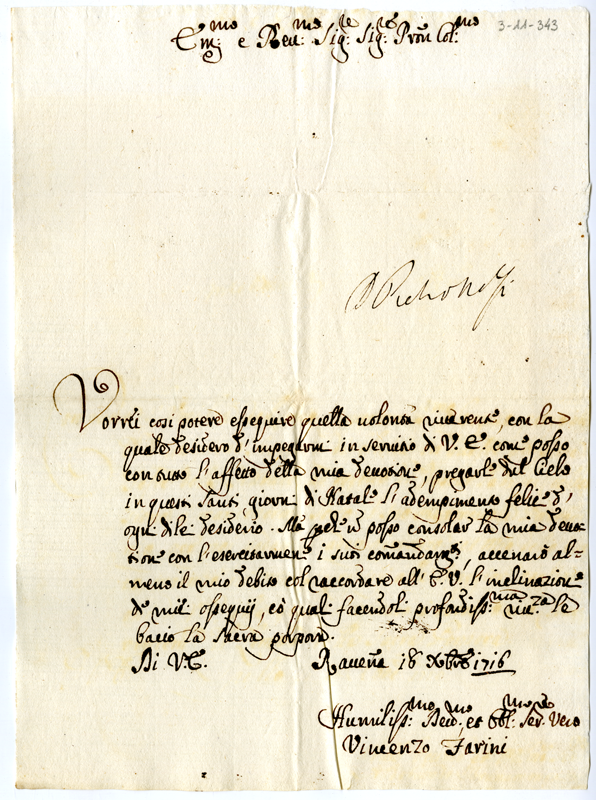 3-11-343
Em:mo e Reu:mo Sig:re Sig:re Pron Col:mo
Vorrei cosi potere essequire quella uolontà riuerente, con la
quale desidero d'impegarmi in seruitio di V. E. come posso
con tutto l'affetto della mia deuotione, pregarle dal Cielo
in questi Santi giorni di Natale l'adempimento felice d'
ogni di le desiderio. Ma posso consolar la mia deuo-
tione con l'esercitarmene i suoi comandamti, accenarò al=
meno il mio debito col raccordare all' E. V. l'inclinazione
de miei ossequij, cò quali facendole profondiss:ma riu:za le
bacio la Sacra porpora.
Di V. E. Rauena 18 Xbre 1716
Humiliss:mo Deu:mo et Obl:mo Ser.re Vero
Vincenzo Farini